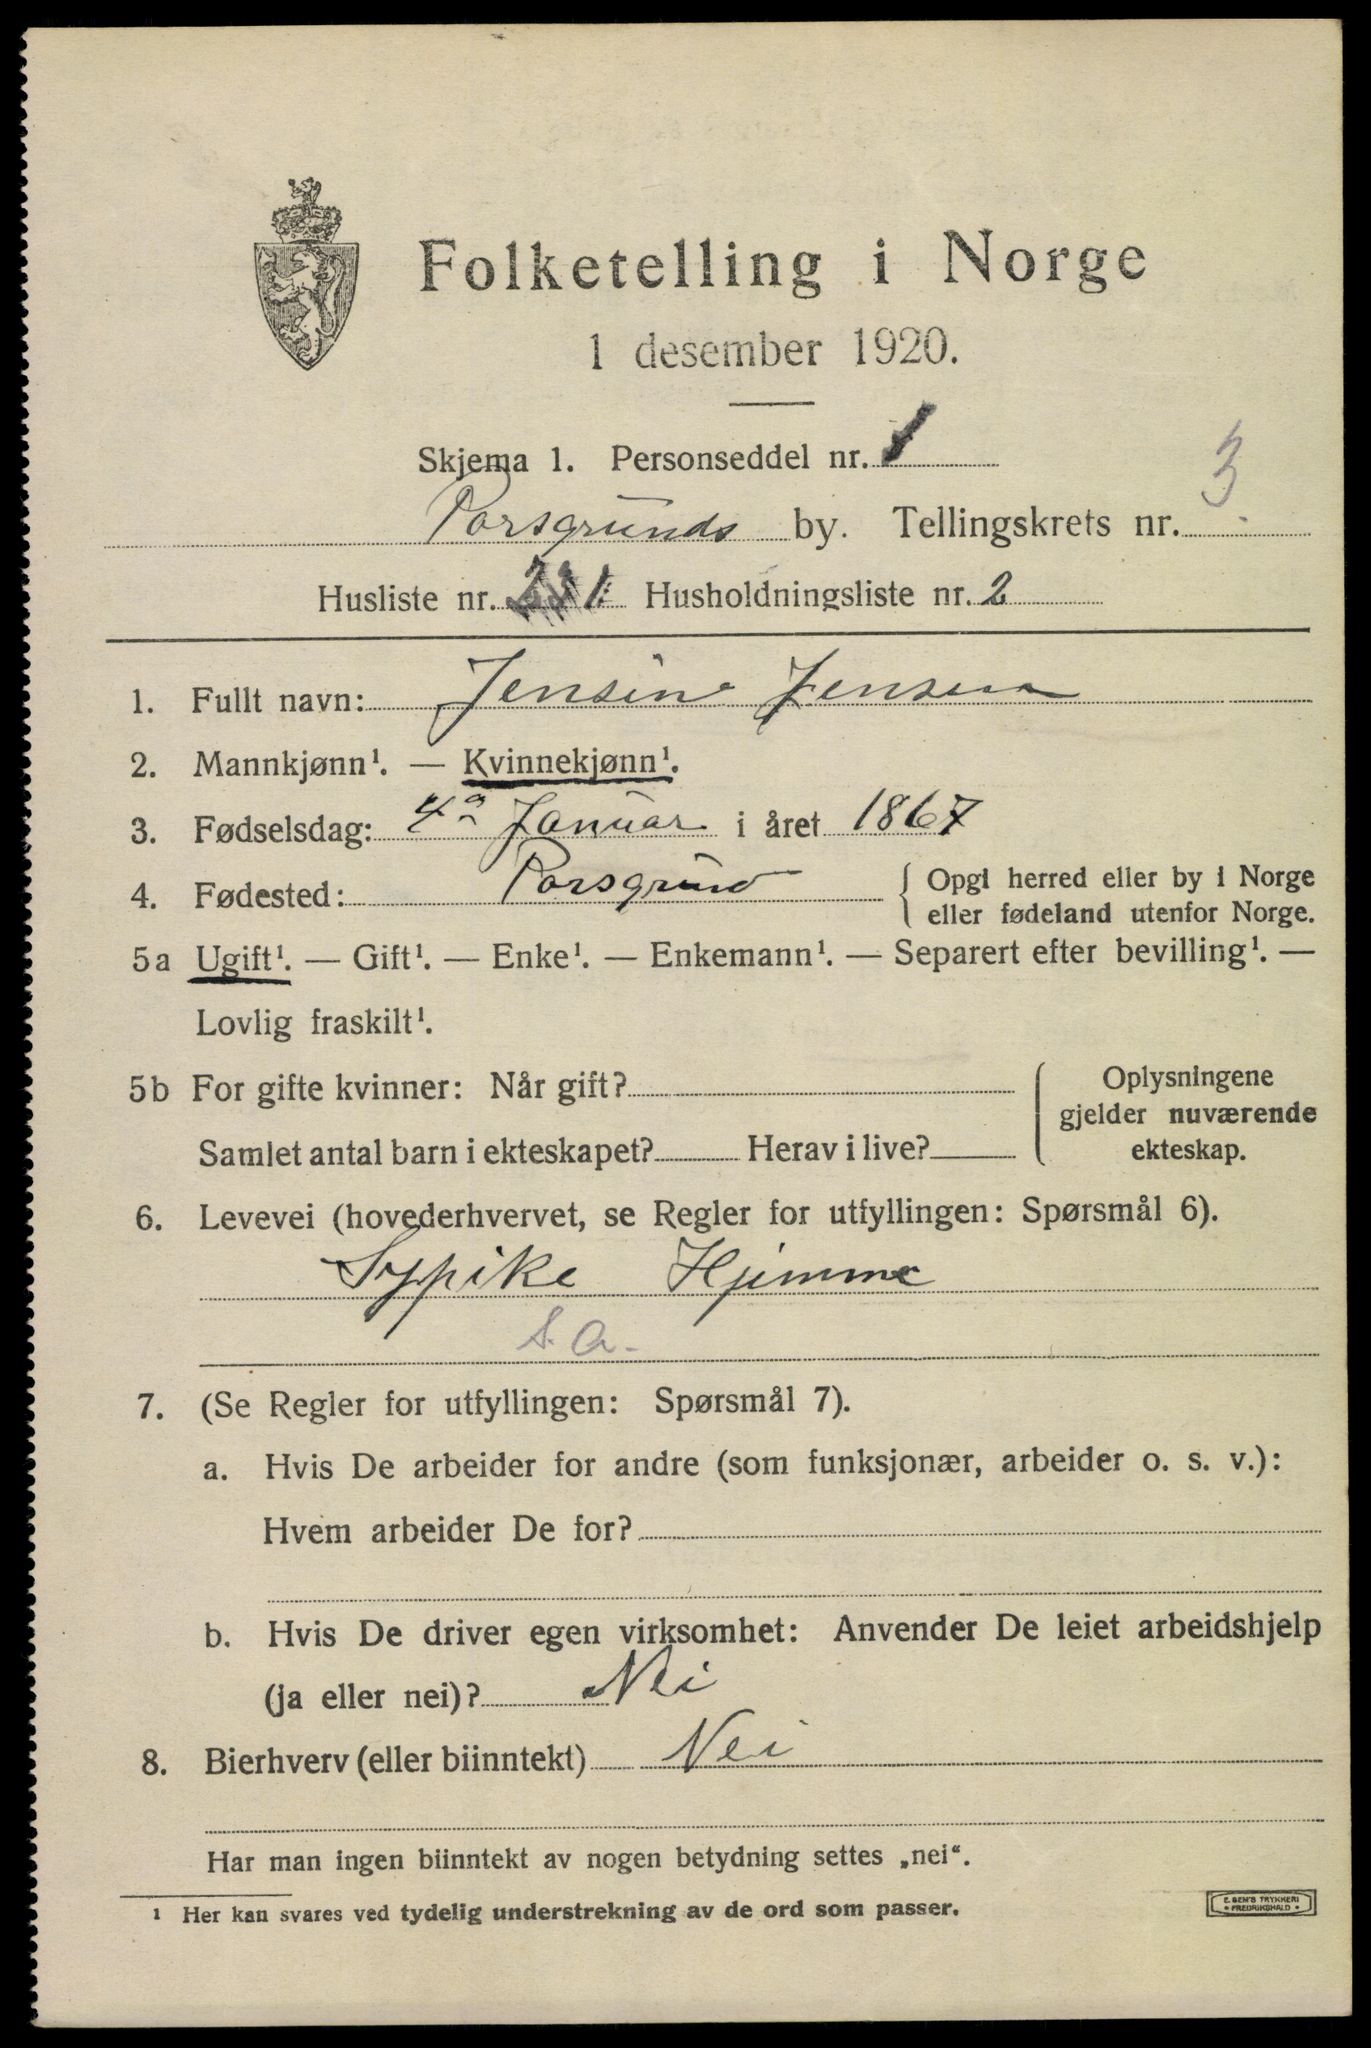 Folketelling i Norge
1 desember 1920.
Skjema 1. Personseddel nr. 1
Porsgrunds by. Tellingskrets nr. 3.
Husliste nr. Husholdningsliste nr. 2
1. Fullt navn: Jensine Jensen
2. Mannkjønn¹. — Kvinnekjønn¹.
3. Fødselsdag: 4de Januar i året 1867
4. Fødested: Porsgrund { Opgi herred eller by i Norge
eller fødeland utenfor Norge.
5a Ugift¹. — Gift¹. — Enke¹. — Enkemann¹. — Separert efter bevilling¹. —
Lovlig fraskilt¹.
5b For gifte kvinner: Når gift? { Oplysningene
gjelder nuværende
Samlet antal barn i ekteskapet? Herav i live? ekteskap.
6. Levevei (hovederhvervet, se Regler for utfyllingen: Spørsmål 6).
Sypike Hjemme
S. a.
7. (Se Regler for utfyllingen: Spørsmål 7).
a. Hvis De arbeider for andre (som funksjonær, arbeider o. s. v.):
Hvem arbeider De for?
b. Hvis De driver egen virksomhet: Anvender De leiet arbeidshjelp
(ja eller nei)? Nei
8. Bierhverv (eller biinntekt) Nei
Har man ingen biinntekt av nogen betydning settes „nei“.
¹ Her kan svares ved tydelig understrekning av de ord som passer.
E. SEM'S TRYKKERI
• FREDRIKSHALD •